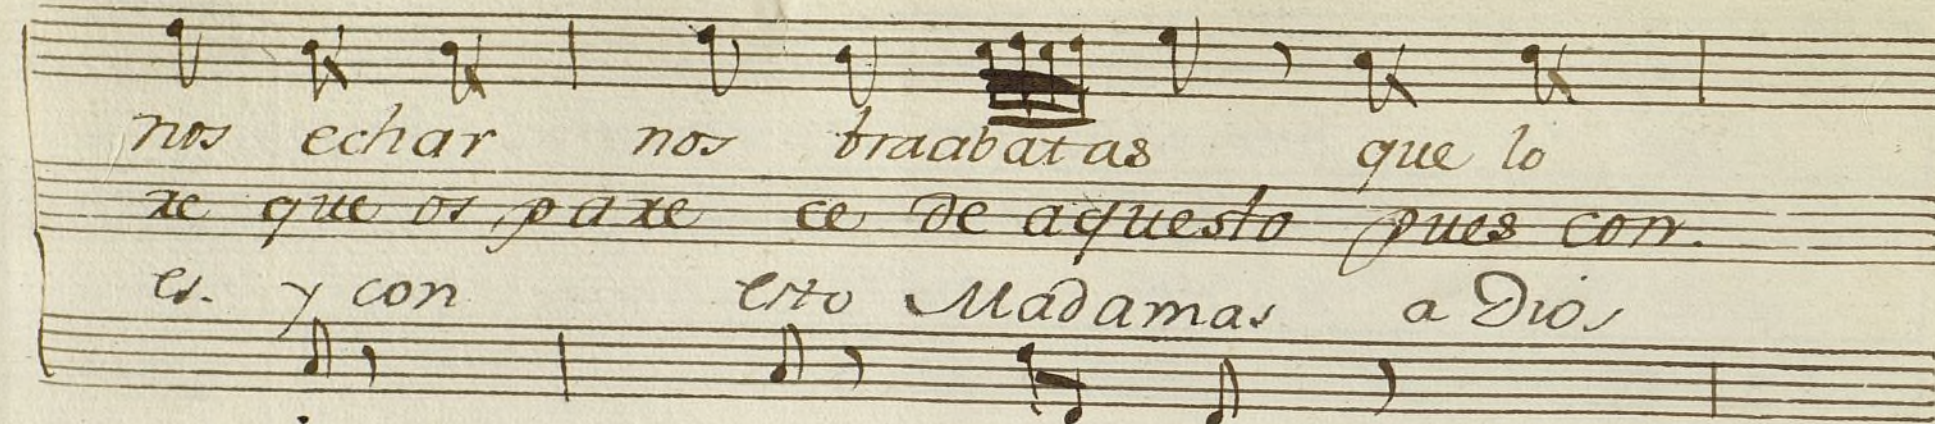 nos echar nos braabatas que lo
re que os pare ce de aquesto pues con.
es. y con esto Madamas a Dios